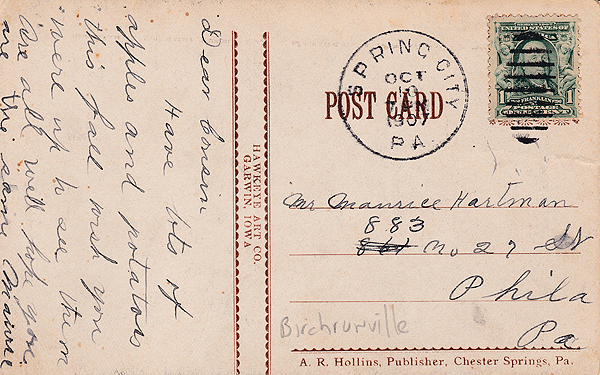 Dear Cousin
Have lots of
apples and potatoes
this fall wish you
were up to see them
are all well hope you
are the same Maurice
HAWKEYE ART CO.
GARWIN, IOWA
SPRING CITY
OCT
10
1907
PA.
POST CARD
UNITED STATES OF
1
Mr Maurice Hartman
883
861 No 27 St
Phila
Pa
Birchrunville
A. R. Hollins, Publisher, Chester Springs, Pa.